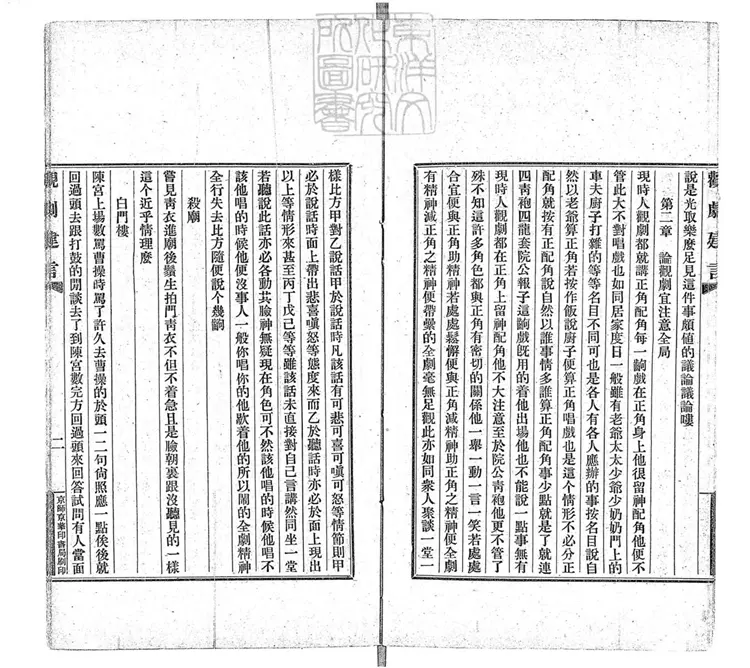 東洋文
化研究
所圖書
觀劇建言
說是光取樂麼足見這件事頗值的議論議論嘍
第二章 論觀劇宜注意全局
現時人觀劇都就講正角配角每一齣戲在正角身上他很留神配角他便不
管此大不對唱戲也如同居家度日一般雖有老爺太太少爺少奶奶門上的
車夫廚子打雜的等等名目不同可也是各人有各人應辦的事按名目說自
然以老爺算正角若按作飯說廚子便算正角唱戲也是這个情形不必分正
配角就按有正配角說自然以誰事情多誰算正角配角事少點就是了就連
四靑袍四龍套院公報子這齣戲旣用的着他出場他也不能說一點事無有
現時人觀劇都在正角上留神配角他不大注意至於院公靑袍他更不管了
殊不知這許多角色都與正角有密切的關係他一舉一動一言一笑若處處
合宜便與正角助精神若處處鬆懈便與正角減精神助正角之精神便全劇
有精神減正角之精神便帶纍的全劇毫無足觀此亦如同衆人聚談一堂一
樣比方甲對乙說話甲於說話時凡該話有可悲可喜可嗔可怒等情節則甲
必於說話時面上帶出悲喜嗔怒等態度來而乙於聽話時亦必於面上現出
以上等情形來甚至丙丁戊己等等雖該話未直接對自己言講然同坐一堂
若聽說此話亦必各動其臉神無疑現在角色可不然該他唱的時候他唱不
該他唱的時候他便沒事人一般你唱你的他歇着他的所以鬧的全劇精神
全行失去比方隨便說个幾齣
殺廟
嘗見靑衣進廟後鬚生拍門靑衣不但不着急且是臉朝裏跟沒聽見的一樣
這个近乎情理麼
白門樓
陳宮上場數罵曹操時罵了許久去曹操的於頭一二句尙照應一點俟後就
回過頭去跟打鼓的閒談去了到陳宮數完方回過頭來回答試問有人當面
觀劇建言
二
京師京華印書局刷印